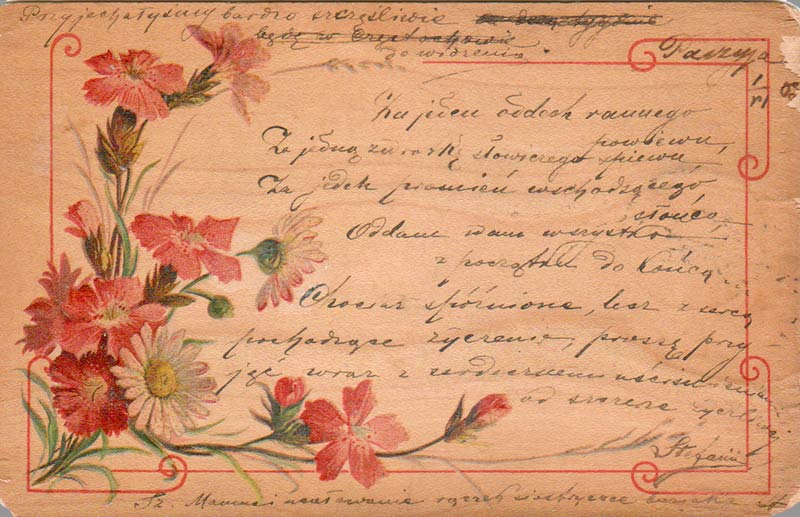 Przyjechałyśmy bardzo szczęśliwie
będę w Częstochowie
do widzenia.
Parzyja
1/VI
Za jeden oddech rannego
powiewu,
Za jedną zwrotkę słowiczego śpiewu
Za jeden promień wschodzącego
słońca,
Oddam wam wszystko
z początku do końca
Chociaż spóźnione, lecz z serca
pochodzące życzenia, proszę przy
jąć wraz z serdecznemi uściśnieniami
od szczerze życzliwej
Stefanii
Sz. Mamusi ucałowanie rączek siostrzyczce